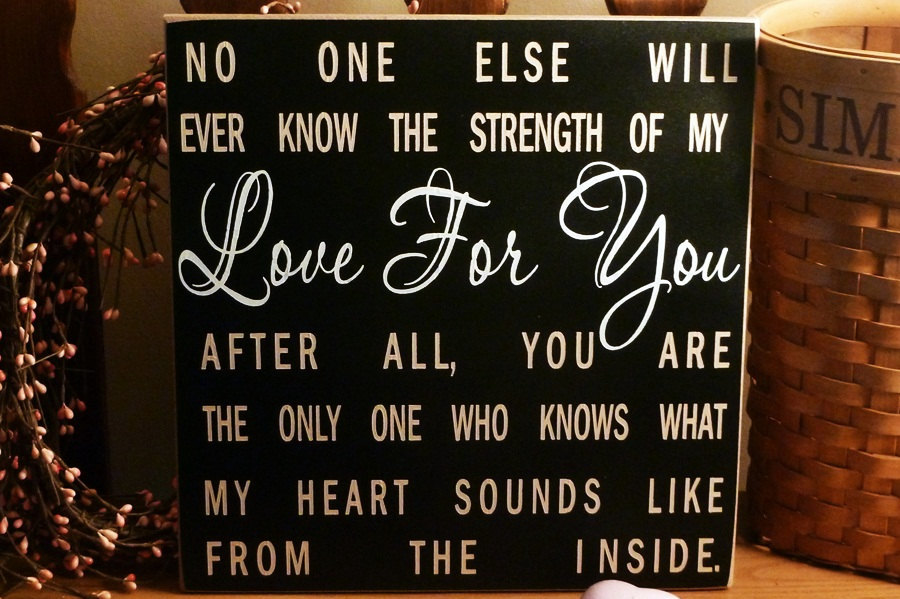 NO ONE ELSE WILL
EVER KNOW THE STRENGTH OF MY
Love For You
AFTER ALL, YOU ARE
THE ONLY ONE WHO KNOWS WHAT
MY HEART SOUNDS LIKE
FROM THE INSIDE.
SIM